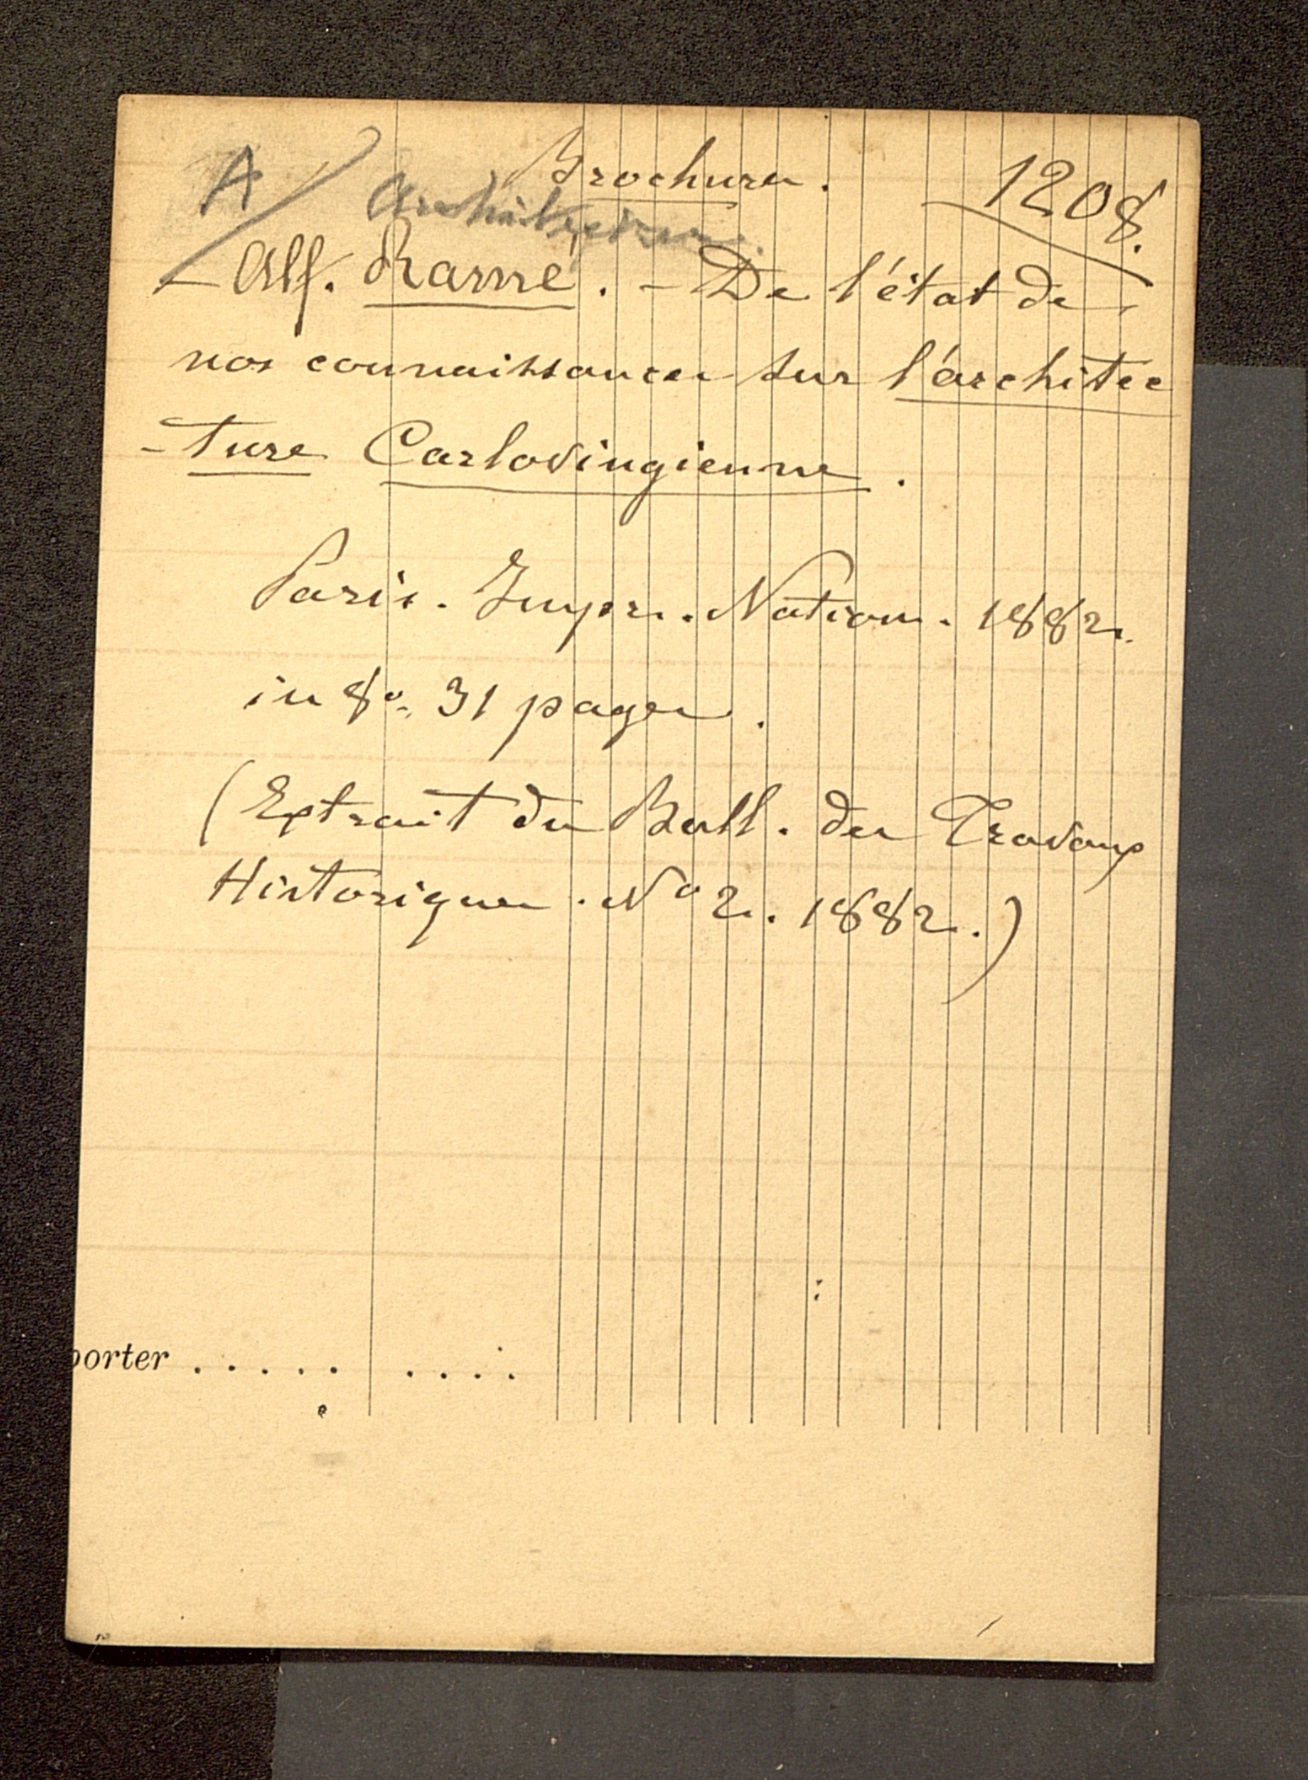 Brochures.
1208.
A
Architecture.
- Alf. Ramé. - De l'état de
nos connaissances sur l'architec
-ture Carlovingienne.
Paris. Impr. Nation. 1882.
in 8º. 31 pages.
(Extrait du Bull. des Travaux
Historiques. Nº 2. 1882.)
porter ..... ....